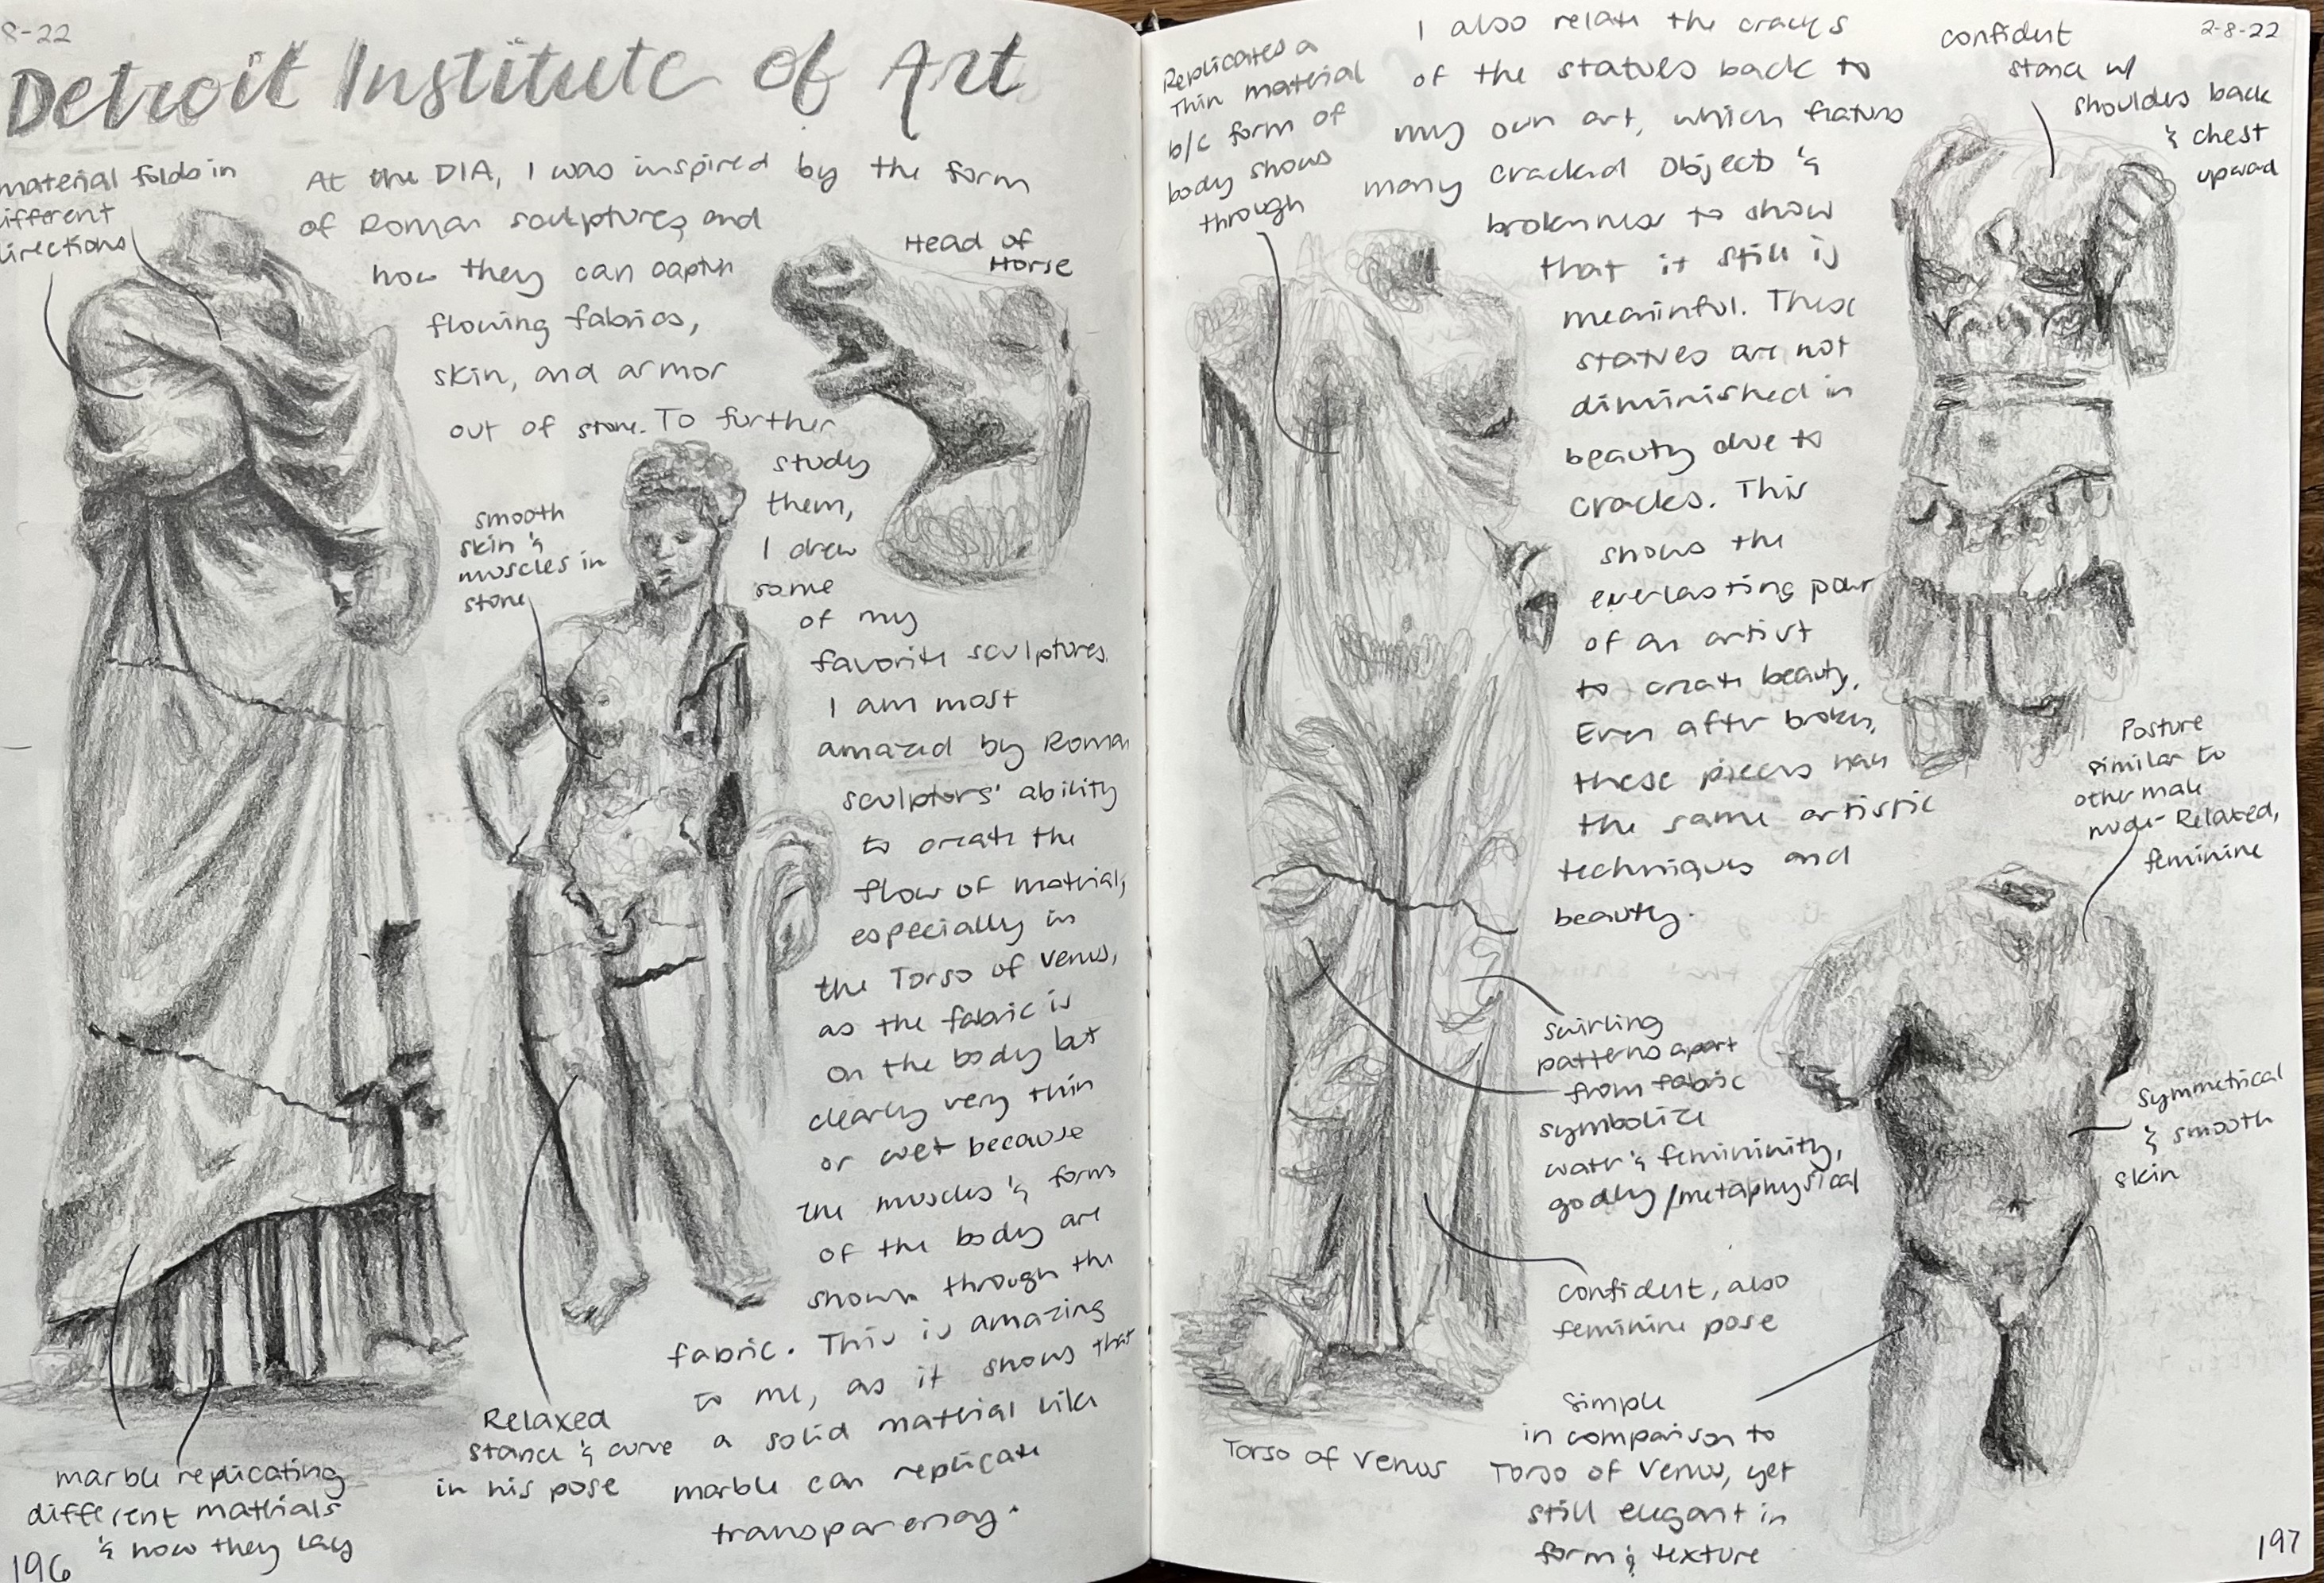 8-22
Detroit Institute of Art
material folds in
different
directions
At the DIA, I was inspired by the form
of Roman sculptures, and
how they can captur
flowing fabrics,
skin, and armor
out of stone. To further
study
them,
I drew
some
of my
favorite sculptures.
I am most
amazed by Roman
sculptors' ability
to create the
flow of material,
especially in
the Torso of Venus,
as the fabric is
on the body but
clearly very thin
or wet because
the muscles & forms
of the body are
shown through the
fabric. This is amazing
to me, as it shows that
a solid material like
marble can replicate
transparency.
Head of
Horse
smooth
skin &
muscles in
stone
Relaxed
stance & curve
in his pose
marble replicating
different matrials
& how they lay
196
2-8-22
Replicates a
Thin material
b/c form of
body shows
through
I also relate the cracks
of the statues back to
my own art, which features
many cracked objects &
brokenness to show
that it still is
meaninful. These
statues are not
diminished in
beauty due to
cracks. This
shows the
everlasting powr
of an artist
to create beauty.
Even after broken,
these pieces have
the same artistic
techniques and
beauty.
confident
stance w/
shoulders back
& chest
upward
Posture
similar to
other male
nude- Relaxed,
feminine
swirling
patterns apart
from fabric
symbolize
water & femininity,
godly/metaphysical
Symmetrical
& smooth
skin
confident, also
feminine pose
Torso of Venus
Simple
in comparison to
Torso of Venus, yet
still elegant in
form & texture
197